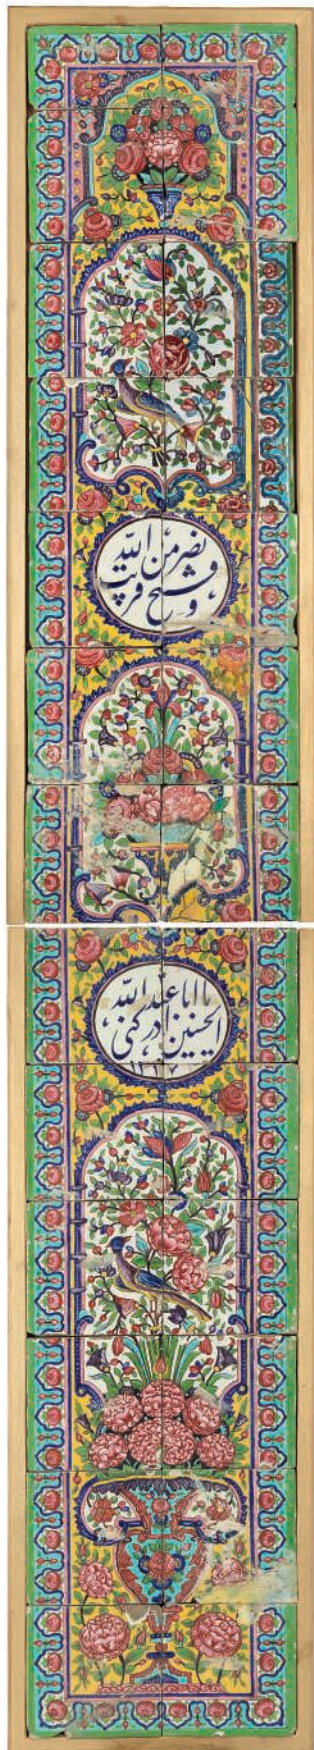 نصر من الله
و فتح قریب
یا ابا عبد الله
الحسین ادرکنی